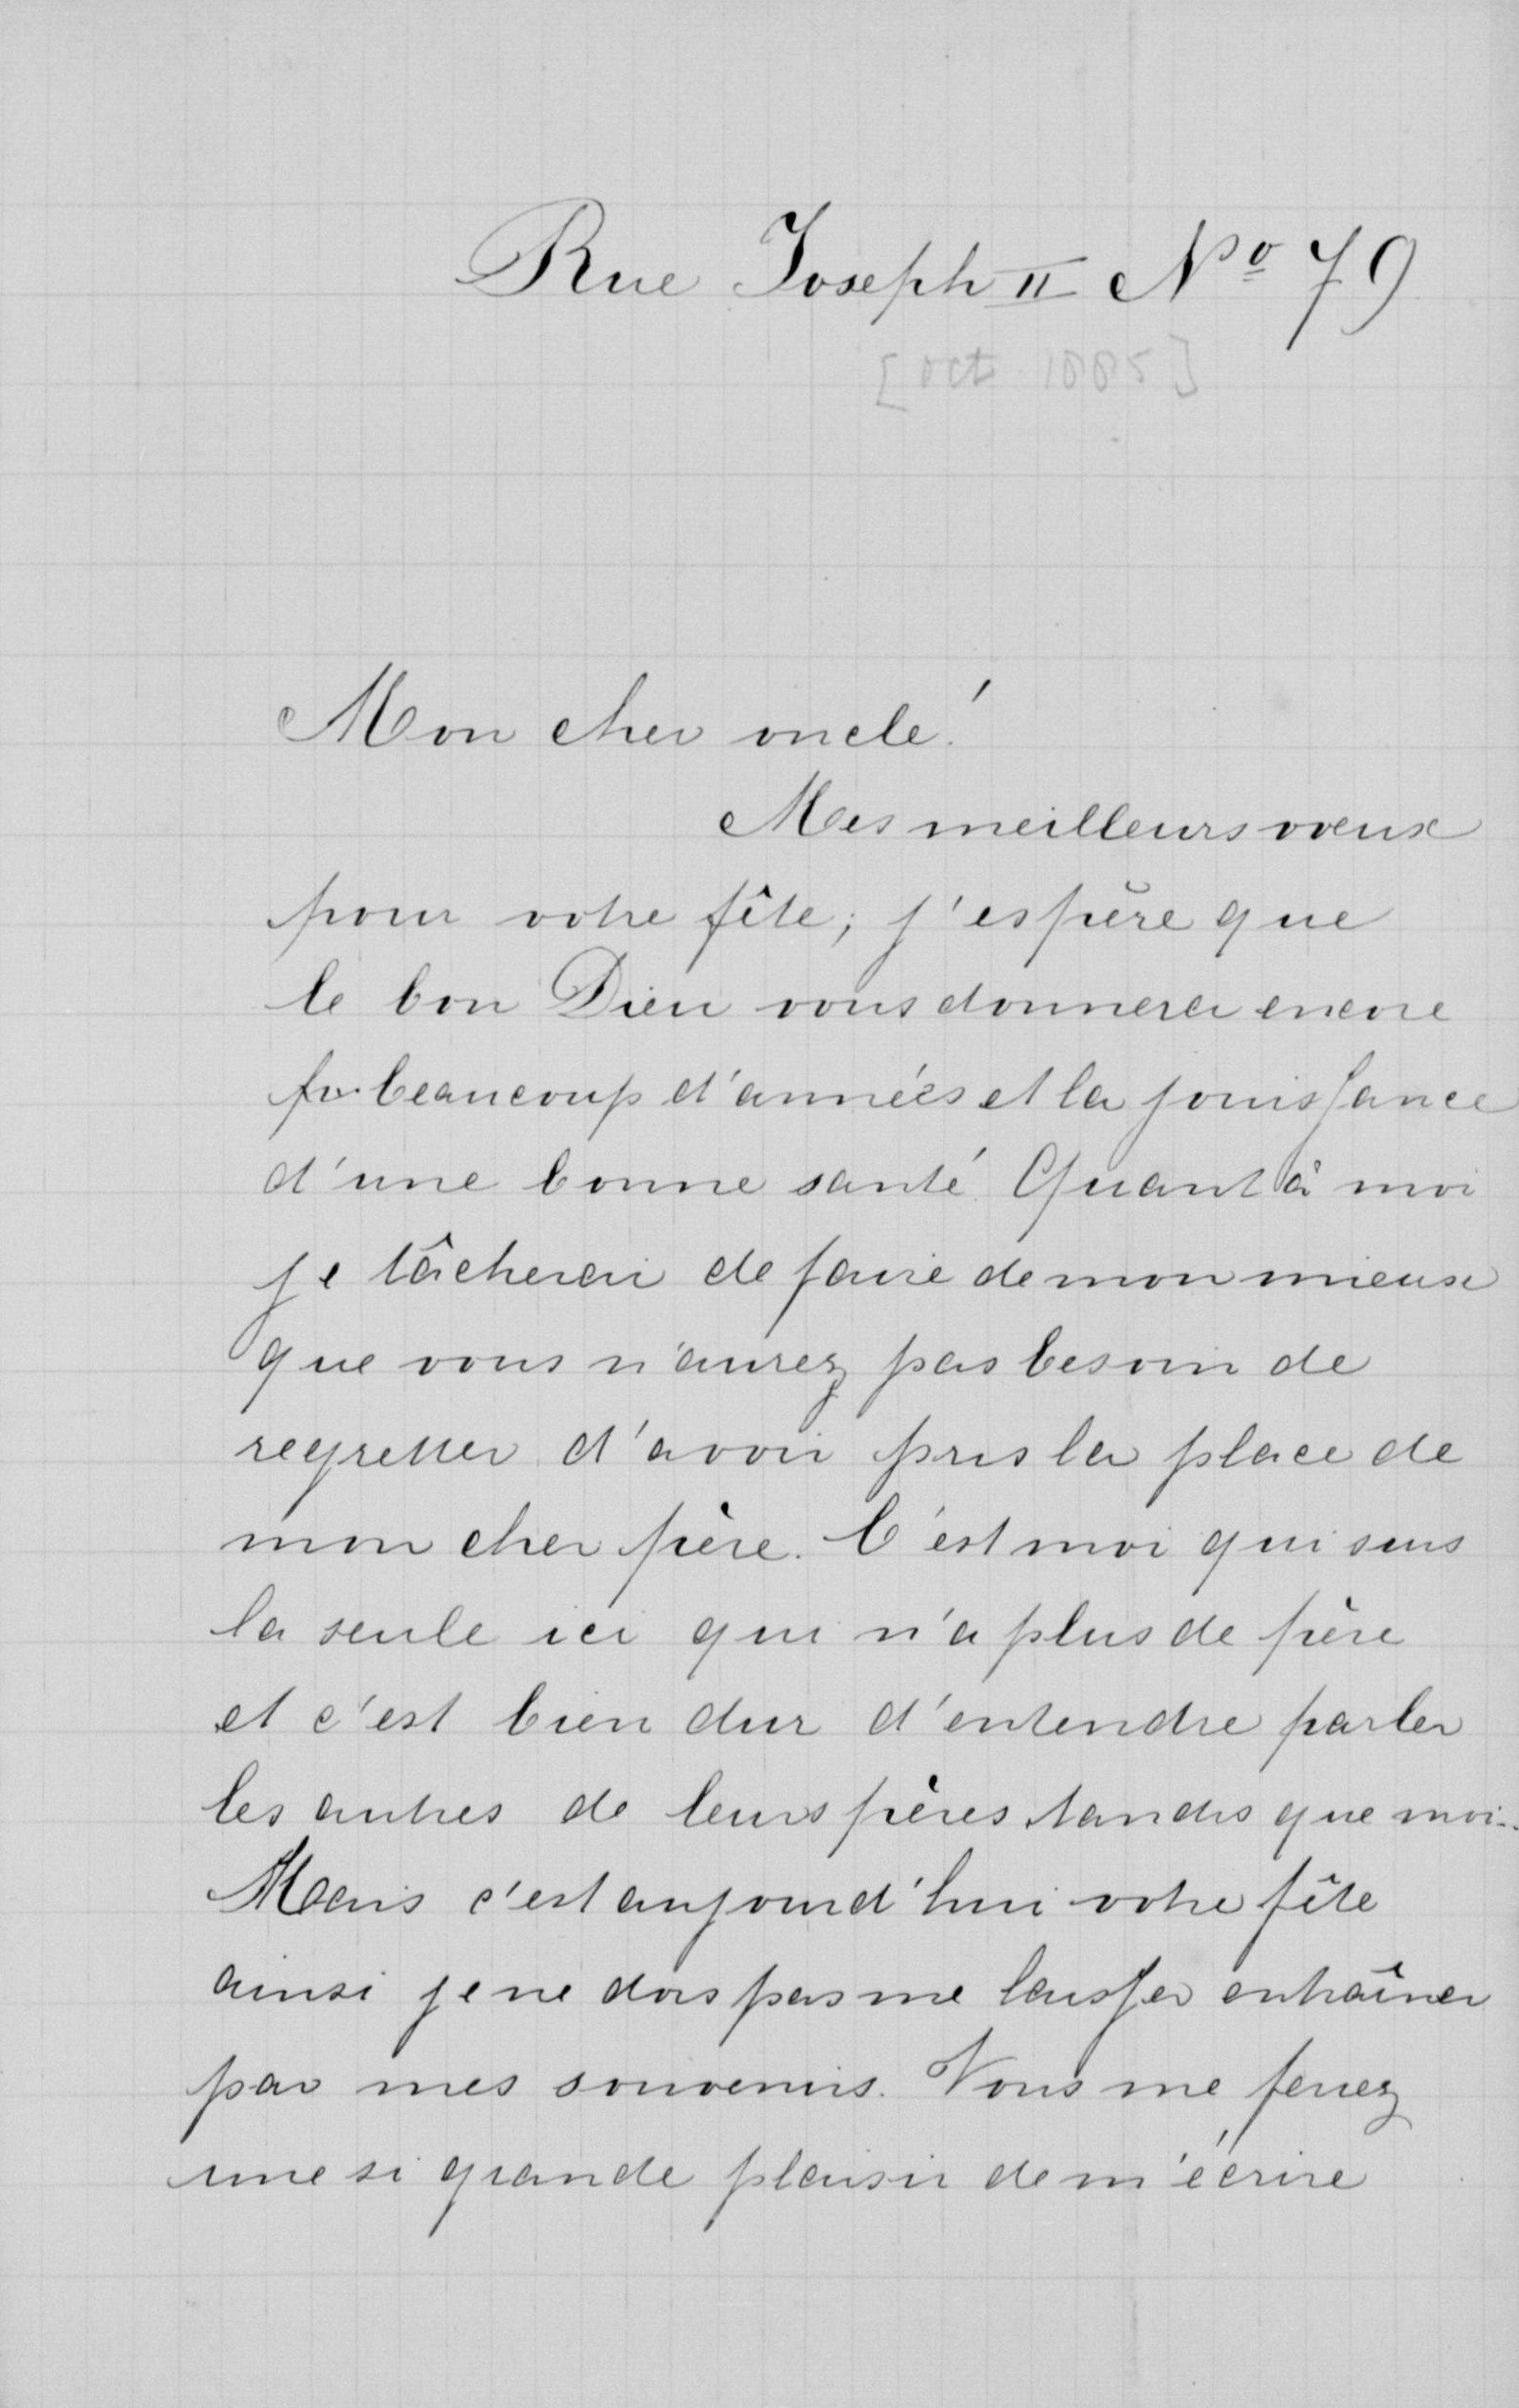 Rue Joseph II Nº 79
[oct 1885]
Mon cher oncle!
Mes meilleurs vœux
pour votre fête; j'espère que
le bon Dieu vous donnera encore
beaucoup d'années et la jouissance
d'une bonne santé. Quant à moi
je tâcherai de faire de mon mieux
que vous n'aurez pas besoin de
regretter d'avoir pris la place de
mon cher père. C'est moi qui suis
la seule ici qui n'a plus de père
et c'est bien dur d'entendre parler
les autres de leurs pères tandis que moi..
Mais c'est aujourd'hui votre fête
ainsi je ne dois pas me laisser entraîner
par mes souvenirs. Vous me feriez
une si grande plaisir de m'écrire